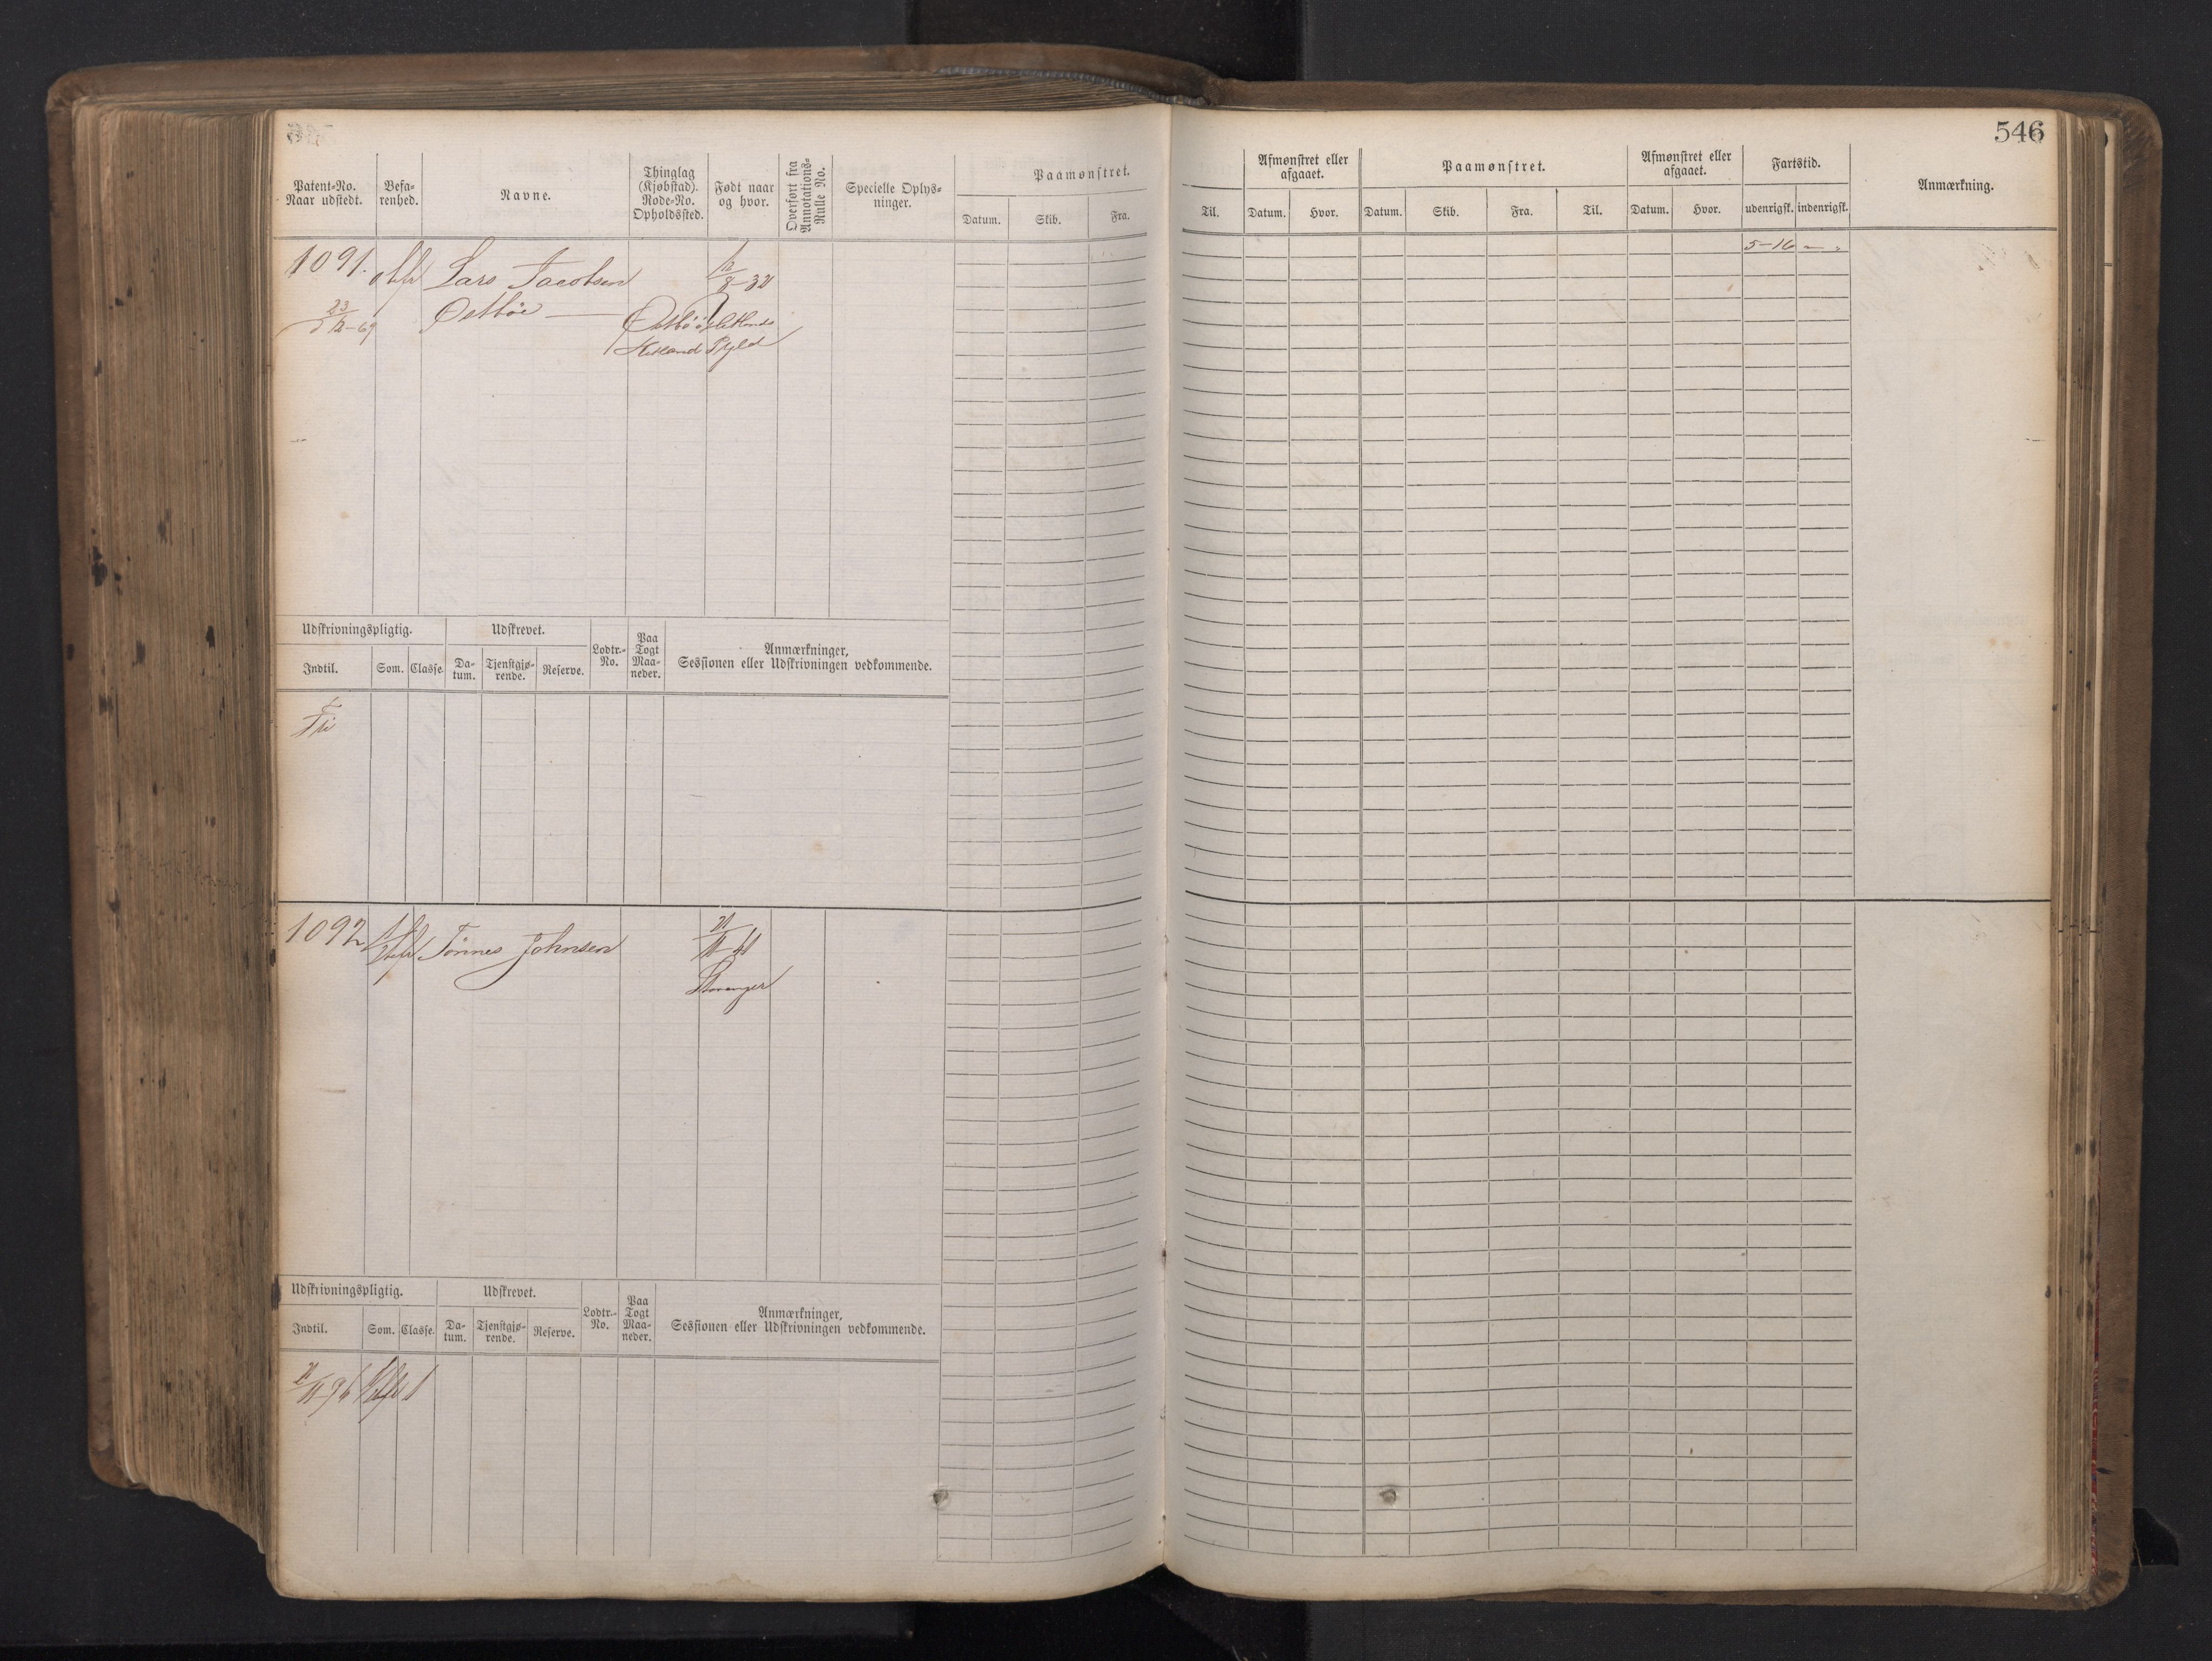 546
Patent=No.
Naar udstedt.
Befa=
renhed.
Navne.
Thinglag
(Kjøbstad).
Rode=No.
Opholdssted.
Født naar
og hvor.
Overført fra
Annotations=
Rulle No.
Specielle Oplys=
ninger.
Paamønstret.
Datum. Skib. Fra.
Til.
Afmønstret eller
afgaaet.
Datum. Hvor.
Paamønstret.
Datum. Skib. Fra. Til.
Afmønstret eller
afgaaet.
Datum. Hvor.
Fartstid.
udenrigsk. indenrigsk.
Anmærkning.
1091. Lars Jacobsen
Østböe
23/12-69
Østbö
5-16
Udskrivningspligtig.
Indtil. Som. Classe.
Udskrevet.
Da=
tum.
Tjenstgjø=
rende.
Reserve.
Lodtr.=
No.
Paa
Togt
Maa=
neder.
Anmærkninger,
Sessionen eller Udskrivningen vedkommende.
Fri
1092 Tönnes Johnsen
Stavanger
Udskrivningspligtig.
Indtil. Som. Classe.
Udskrevet.
Da=
tum.
Tjenstgjø=
rende.
Reserve.
Lodtr.=
No.
Paa
Togt
Maa=
neder.
Anmærkninger,
Sessionen eller Udskrivningen vedkommende.